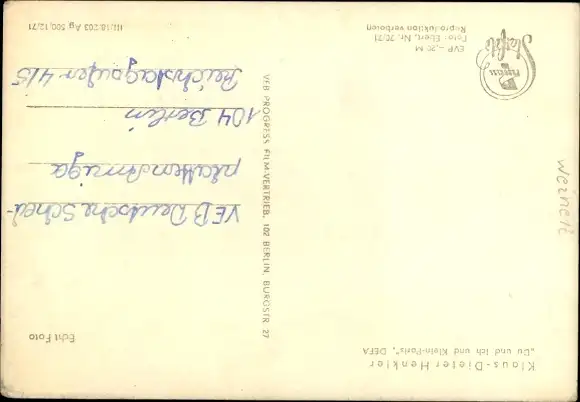 Klaus-Dieter Henkler
„Du und ich und Klein-Paris", DEFA
Echt Foto
VEB PROGRESS FILM-VERTRIEB, 102 BERLIN, BURGSTR. 27
VEB Deutsche Schal-
plattenAmiga
104 Berlin
Reichstagsufer 4/5
EVP –,20 M
Foto: Ebert, Nr. 70/71
Reproduktion verboten
III/18/203 Ag 500/12/71